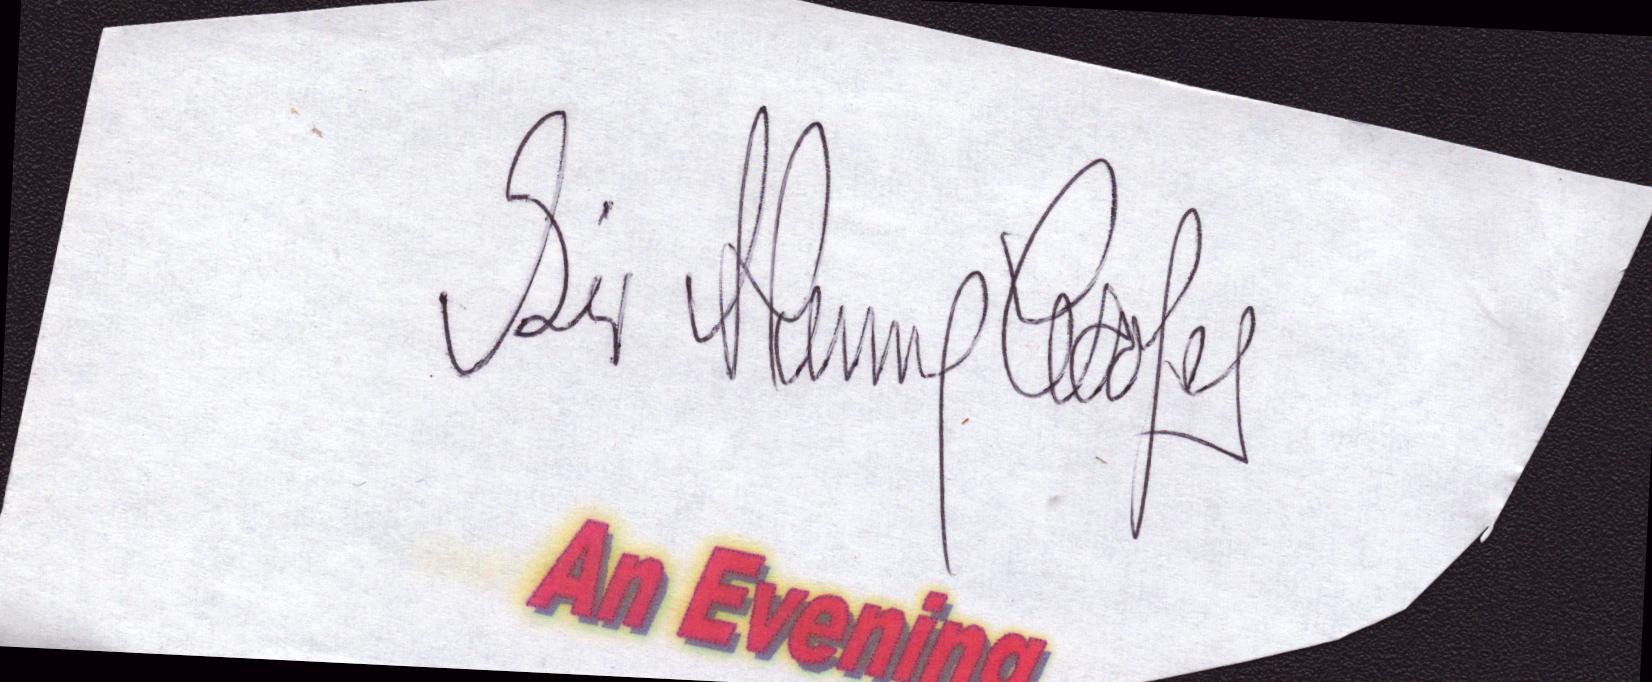 Sir Henry Cooper
An Evening